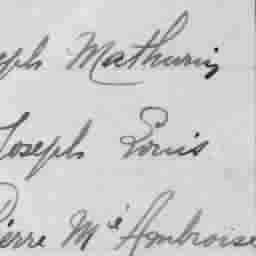 eph Mathurin
Joseph Louis
Pierre Mie Ambroise